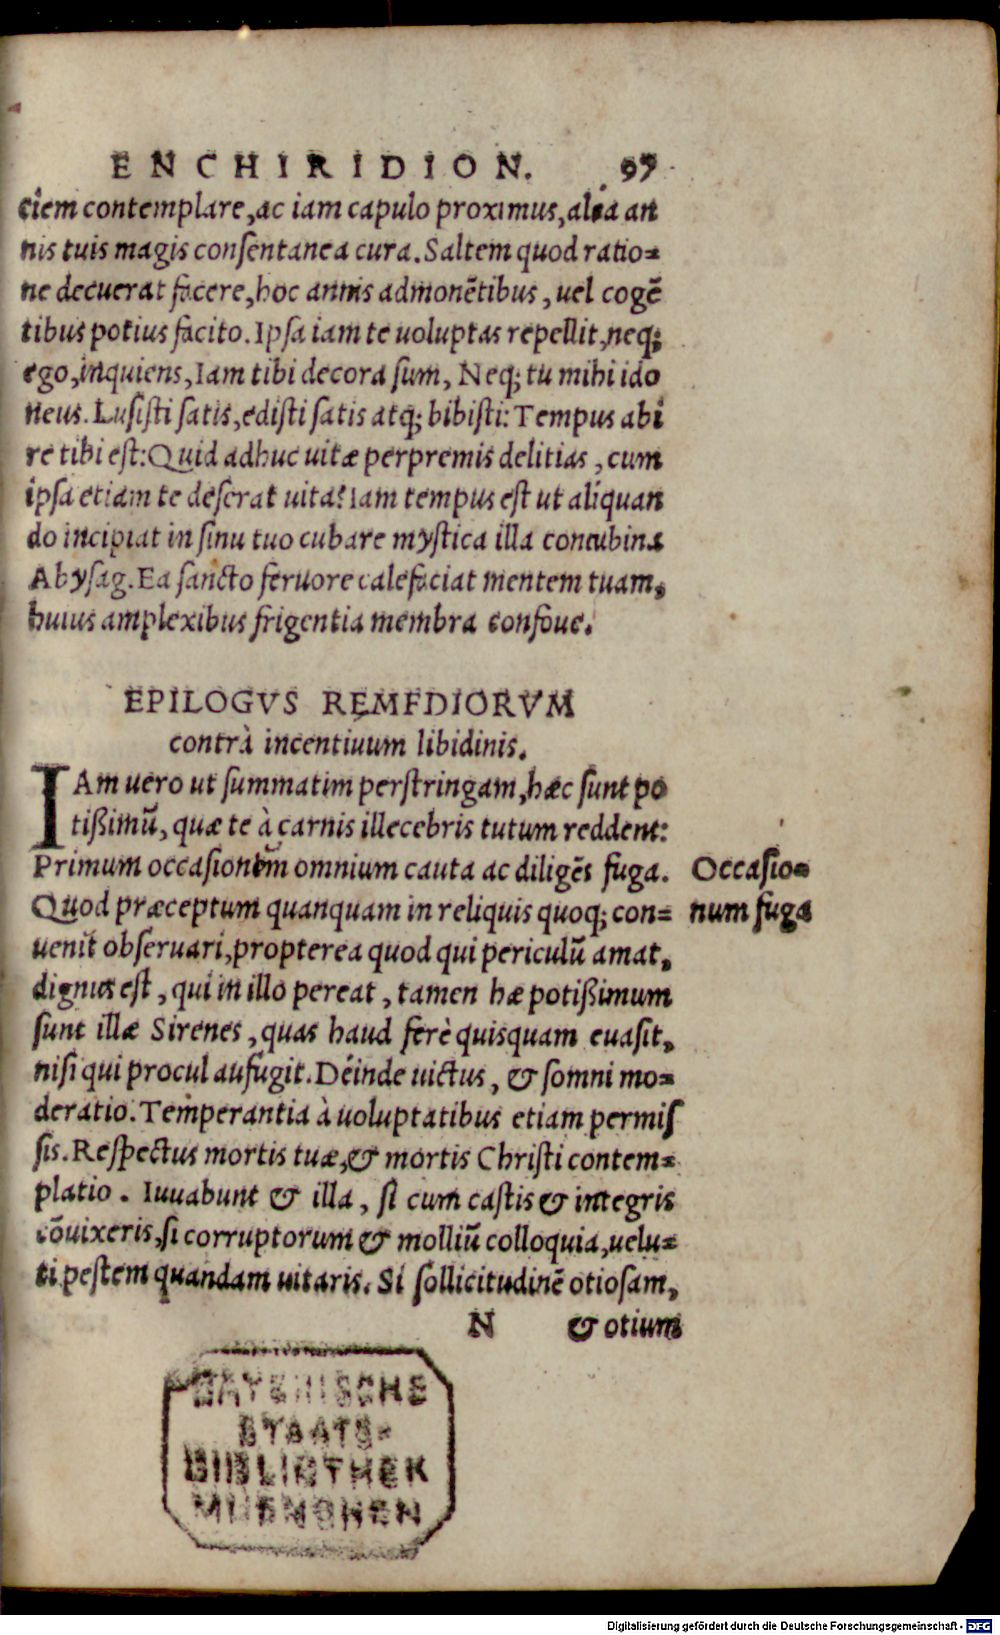 ENCHIRIDION. 97
ciem contemplare, ac iam capulo proximus, alia an
nis tuis magis consentanea cura. Saltem quod ratio=
ne decuerat facere, hoc annis admonētibus, uel cogē
tibus potius facito. Ipsa iam te uoluptas repellit, neq;
ego, inquiens, Iam tibi decora sum, Neq; tu mihi ido
neus. Lusisti satis, edisti satis atq; bibisti: Tempus abi
re tibi est: Quid adhuc uitæ perpremis delitias, cum
ipsa etiam te deserat uita? Iam tempus est ut aliquan
do incipiat in sinu tuo cubare mystica illa concubina
Abysag. Ea sancto feruore calefaciat mentem tuam,
huius amplexibus frigentia membra confoue.
EPILOGVS REMEDIORVM
contrà incentiuum libidinis.
IAm uero ut summatim perstringam, hæc sunt po
tißimū, quæ te à carnis illecebris tutum reddent:
Primum occasionem omnium cauta ac diligēs fuga. Occasio=
Quod præceptum quanquam in reliquis quoq; con= num fuga
uenit obseruari, propterea quod qui periculū amat,
dignus est, qui in illo pereat, tamen hæ potißimum
sunt illæ Sirenes, quas haud ferè quisquam euasit,
nisi qui procul aufugit. Deinde uictus, & somni mo=
deratio. Temperantia à uoluptatibus etiam permis
sis. Respectus mortis tuæ, & mortis Christi contem=
platio. Iuuabunt & illa, si cum castis & integris
cōuixeris, si corruptorum & molliū colloquia, uelu=
ti pestem quandam uitaris. Si sollicitudinē otiosam,
N & otium
BAYERISCHE
STAATS-
BIBLIOTHEK
MUENCHEN
Digitalisierung gefördert durch die Deutsche Forschungsgemeinschaft - DFG